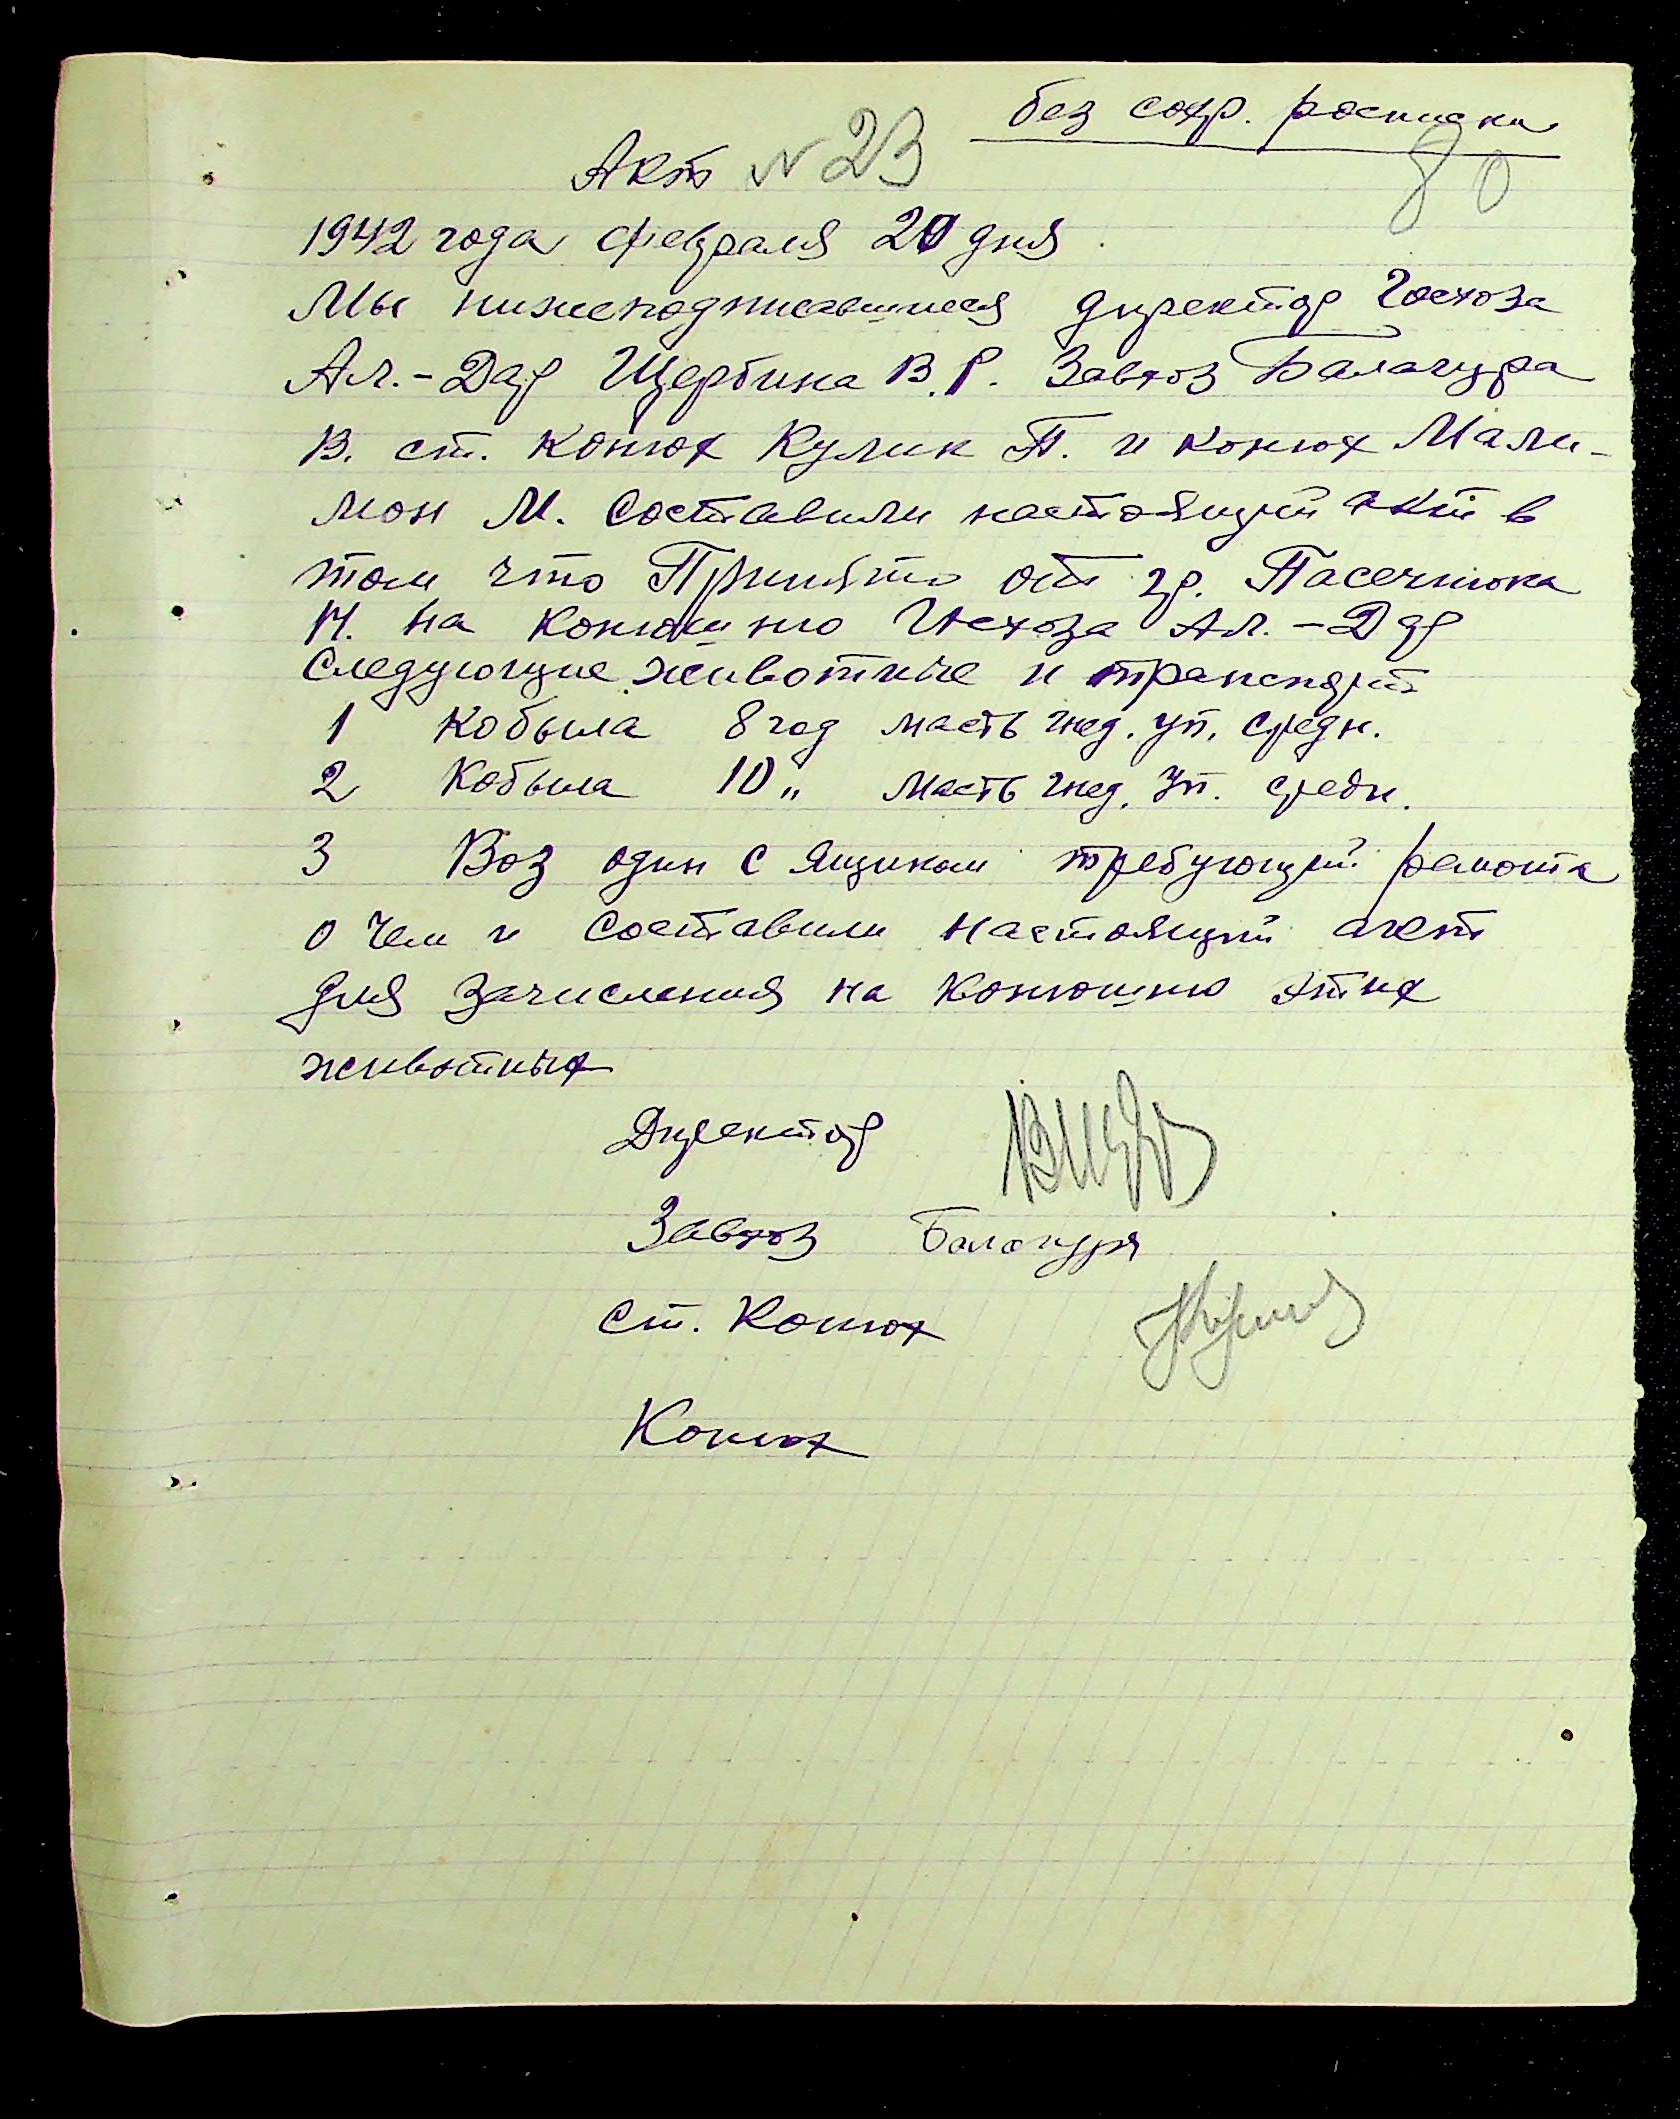 без сохр. расписки
80
Акт № 23
1942 года февраля 20 дня
Мы нижеподписавшиеся директор Госхоза
Ал.-Дар Щербина В.Р. Завхоз Балагура
В. ст. конюх Кулик П. и конюх Мали-
мон М. составили настоящий акт в
том что Принято от гр. Пасечнюка
М. на конюшню Госхоза Ал.-Дар
следующие животные и транспорт
1 Кобыла 8 год масть гнед. уп. средн.
2 Кобыла 10 " масть гнед. уп. средн.
3 Воз один с ящиком требующий ремонта
о чем и составили настоящий акт
для зачисления на конюшню этих
животных
Директор
Завхоз Балагура
Ст. Конюх Кулик
Конюх